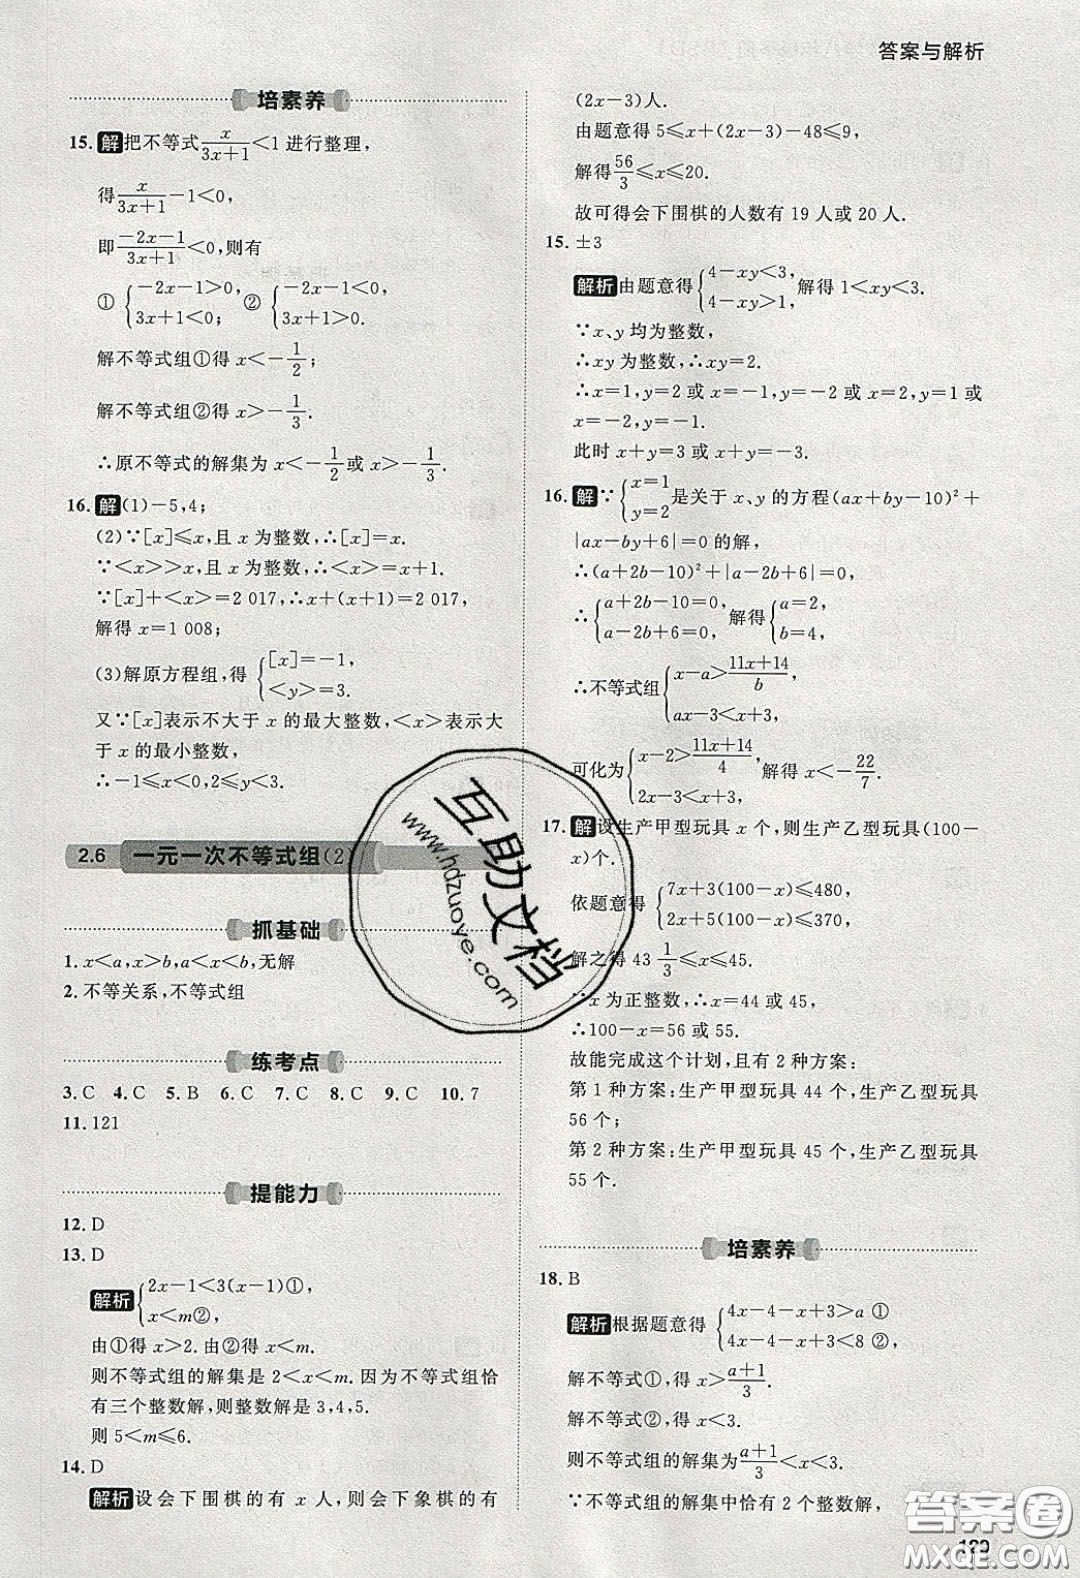 答案与解析
培素养
15. 解 把不等式x/(3x+1)<1进行整理，
得x/(3x+1)-1<0，
即(-2x-1)/(3x+1)<0，则有
① {-2x-1>0, 3x+1<0; ② {-2x-1<0, 3x+1>0.
解不等式组①得 x<-1/2；
解不等式组②得 x>-1/3.
∴原不等式的解集为 x<-1/2或 x>-1/3.
16. 解 (1)-5,4；
(2)∵[x]≤x，且 x 为整数，∴[x]=x.
∵<x>>x，且 x 为整数，∴<x>=x+1.
∵[x]+<x>=2 017，∴x+(x+1)=2 017，
解得 x=1 008；
(3)解原方程组，得 {[x]=-1, <y>=3.
又∵[x]表示不大于 x 的最大整数，<x>表示大
于 x 的最小整数，
∴-1≤x<0，2≤y<3.
2.6 一元一次不等式组(2
抓基础
1. x<a，x>b，a<x<b，无解
2. 不等关系，不等式组
练考点
3. C 4. C 5. B 6. C 7. C 8. C 9. C 10. 7
11. 121
提能力
12. D
13. D
解析 {2x-1<3(x-1)①, x<m②,
由①得 x>2. 由②得 x<m.
则不等式组的解集是 2<x<m. 因为不等式组恰
有三个整数解，则整数解是 3,4,5.
则 5<m≤6.
14. D
解析 设会下围棋的有 x 人，则会下象棋的有
(2x-3)人.
由题意得 5≤x+(2x-3)-48≤9，
解得56/3≤x≤20.
故可得会下围棋的人数有 19 人或 20 人.
15. ±3
解析 由题意得{4-xy<3, 4-xy>1, 解得 1<xy<3.
∵x、y 均为整数，
∴xy 为整数，xy=2.
∴x=1,y=2 或 x=-1,y=-2 或 x=2,y=1 或
x=-2,y=-1.
此时 x+y=3 或 x+y=-3.
16. 解 ∵{x=1, y=2 是关于 x、y 的方程(ax+by-10)²+
|ax-by+6|=0 的解，
∴(a+2b-10)²+|a-2b+6|=0，
∴{a+2b-10=0, a-2b+6=0, 解得{a=2, b=4,
∴不等式组{x-a>(11x+14)/b, ax-3<x+3,
可化为{x-2>(11x+14)/4, 2x-3<x+3, 解得 x<-22/7.
17. 解 设生产甲型玩具 x 个，则生产乙型玩具(100-
x)个.
依题意得 {7x+3(100-x)≤480, 2x+5(100-x)≤370,
解之得 43 1/3≤x≤45.
∵x 为正整数，∴x=44 或 45，
∴100-x=56 或 55.
故能完成这个计划，且有 2 种方案：
第 1 种方案：生产甲型玩具 44 个，生产乙型玩具
56 个；
第 2 种方案：生产甲型玩具 45 个，生产乙型玩具
55 个.
培素养
18. B
解析 根据题意得 {4x-4-x+3>a ① 4x-4-x+3<8 ②,
解不等式①，得 x>(a+1)/3.
解不等式②，得 x<3.
则不等式组的解集为(a+1)/3<x<3.
∵不等式组的解集中恰有 2 个整数解，
129
互助文档
www.hdzuoye.com
答案圈
MXQE.COM